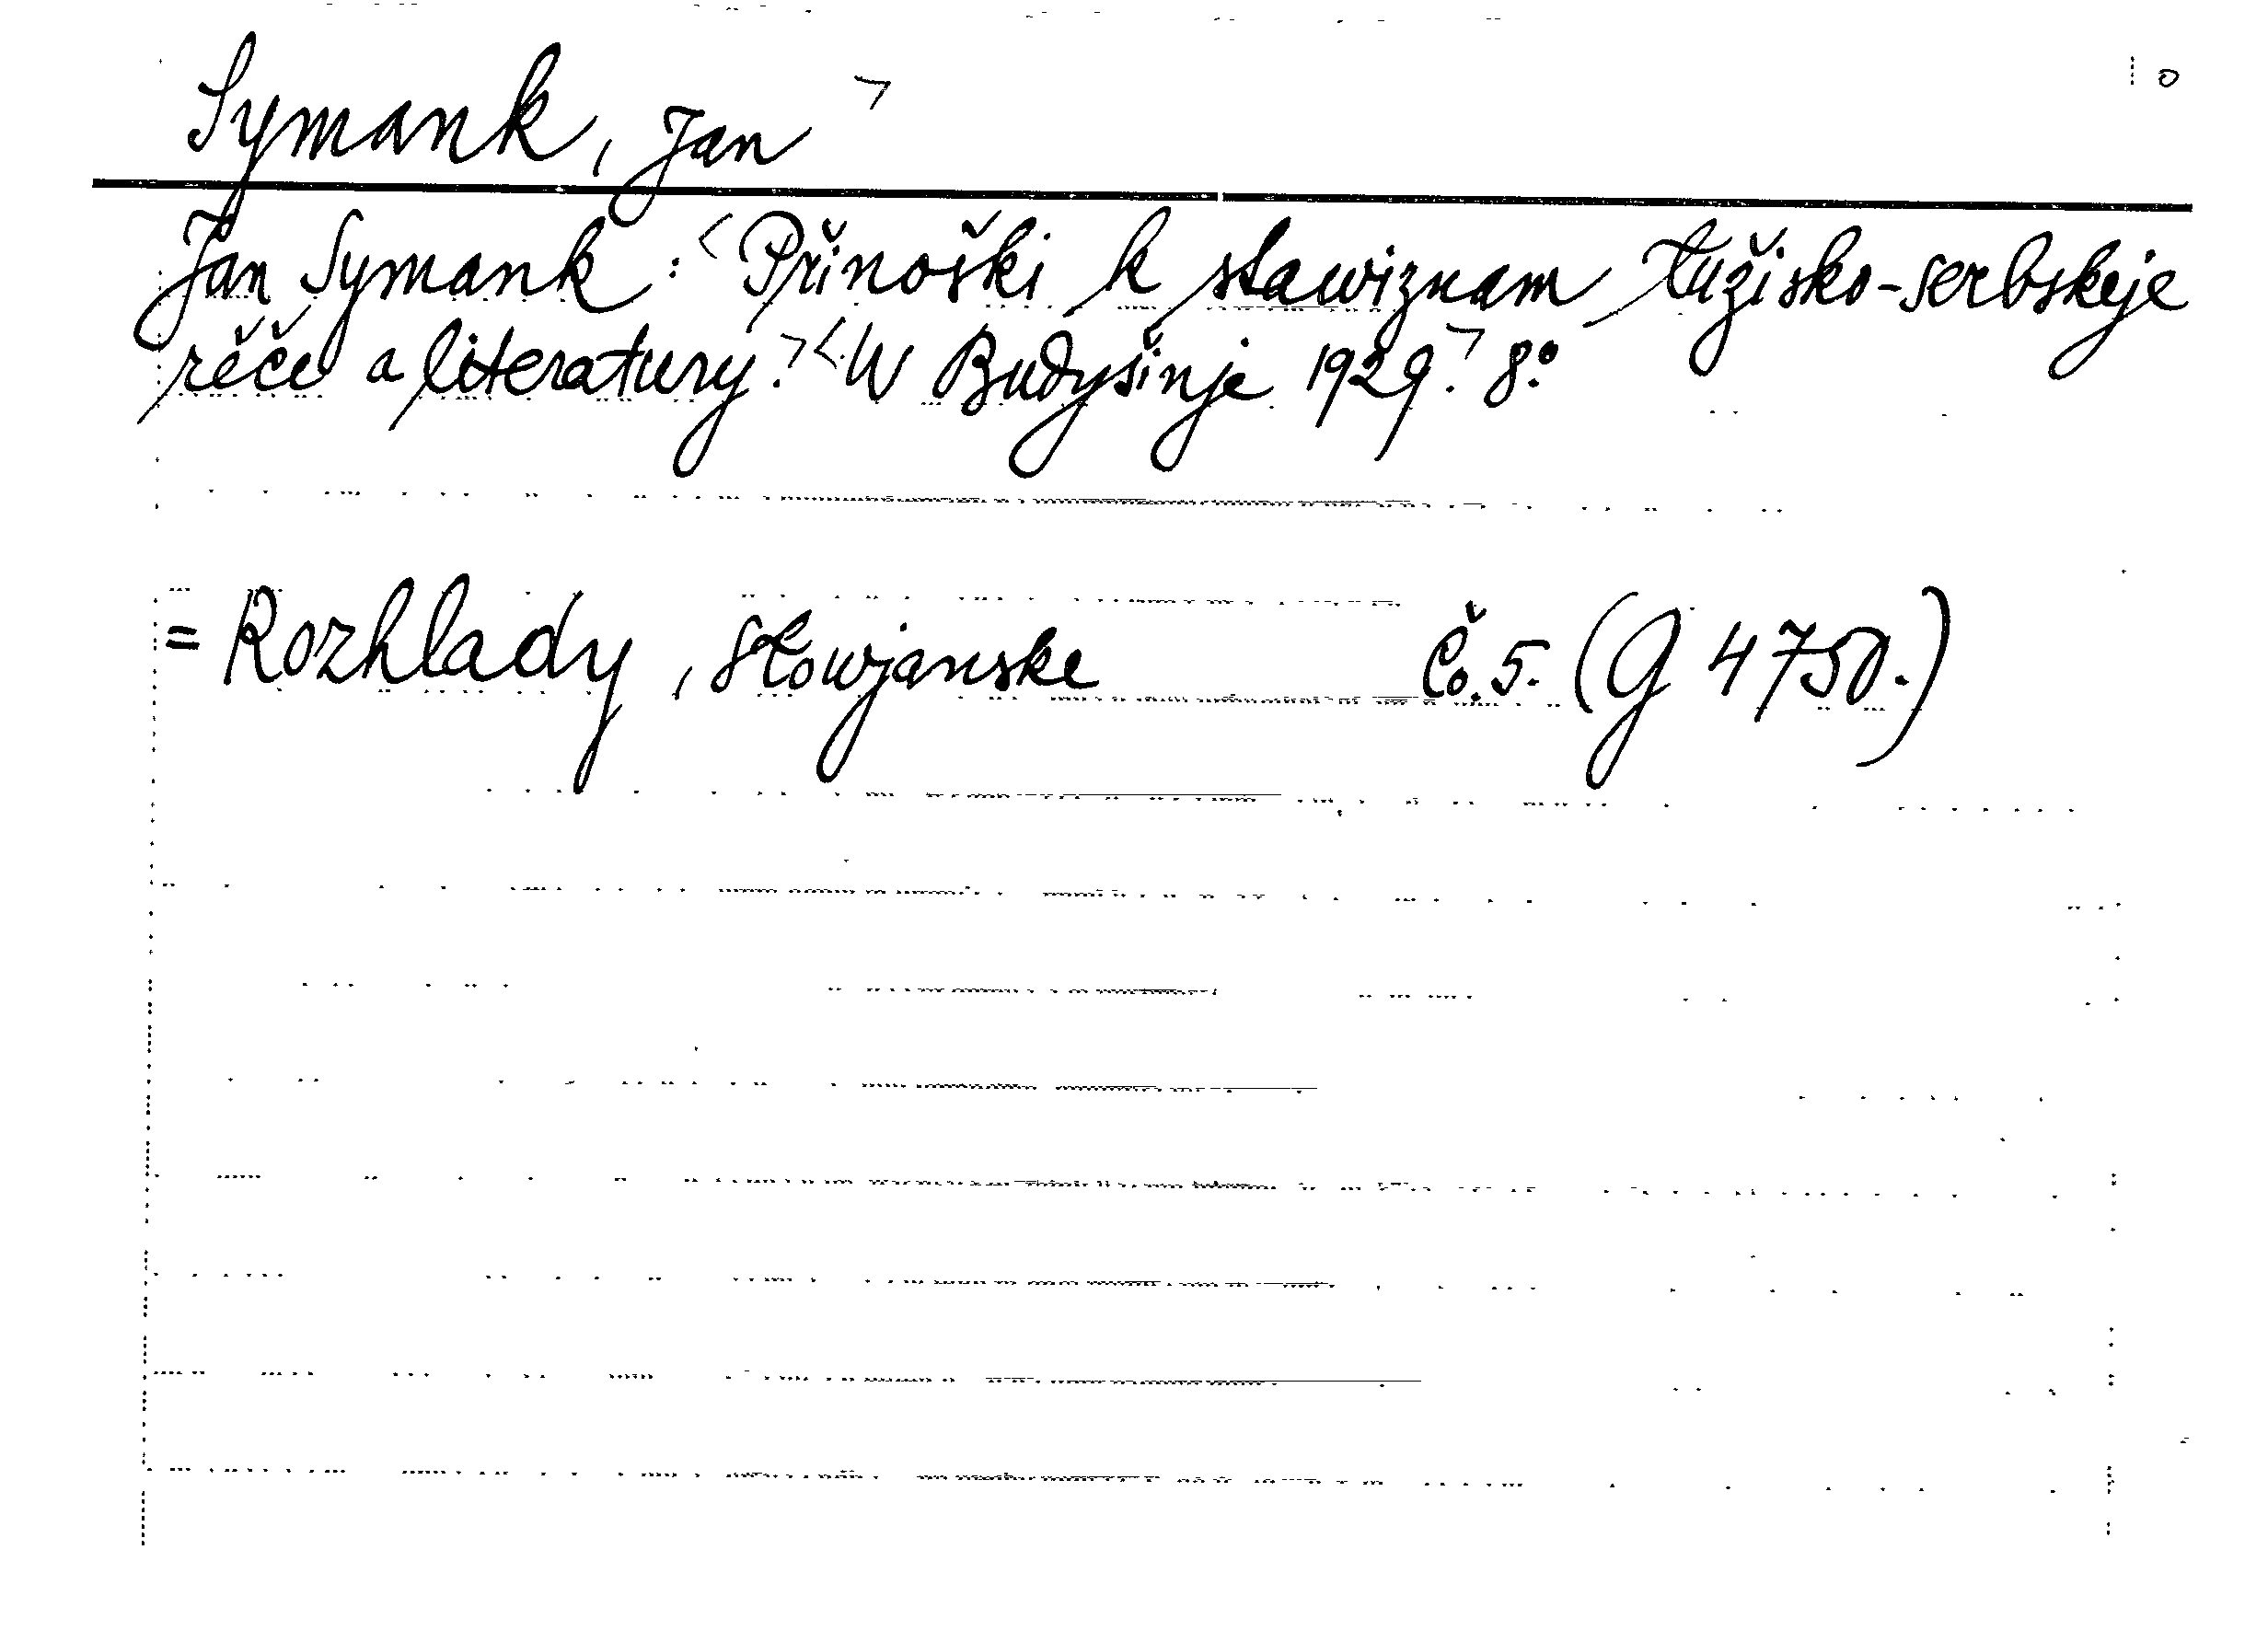 Symank, Jan
Jan Symank: Přinoški k stawiznam Łužisko-serbskeje
rěče a literatury. W Budyšinje 1929. 8.°
= Rozhlady, Słowjanske Čo. 5. (G 4750.)